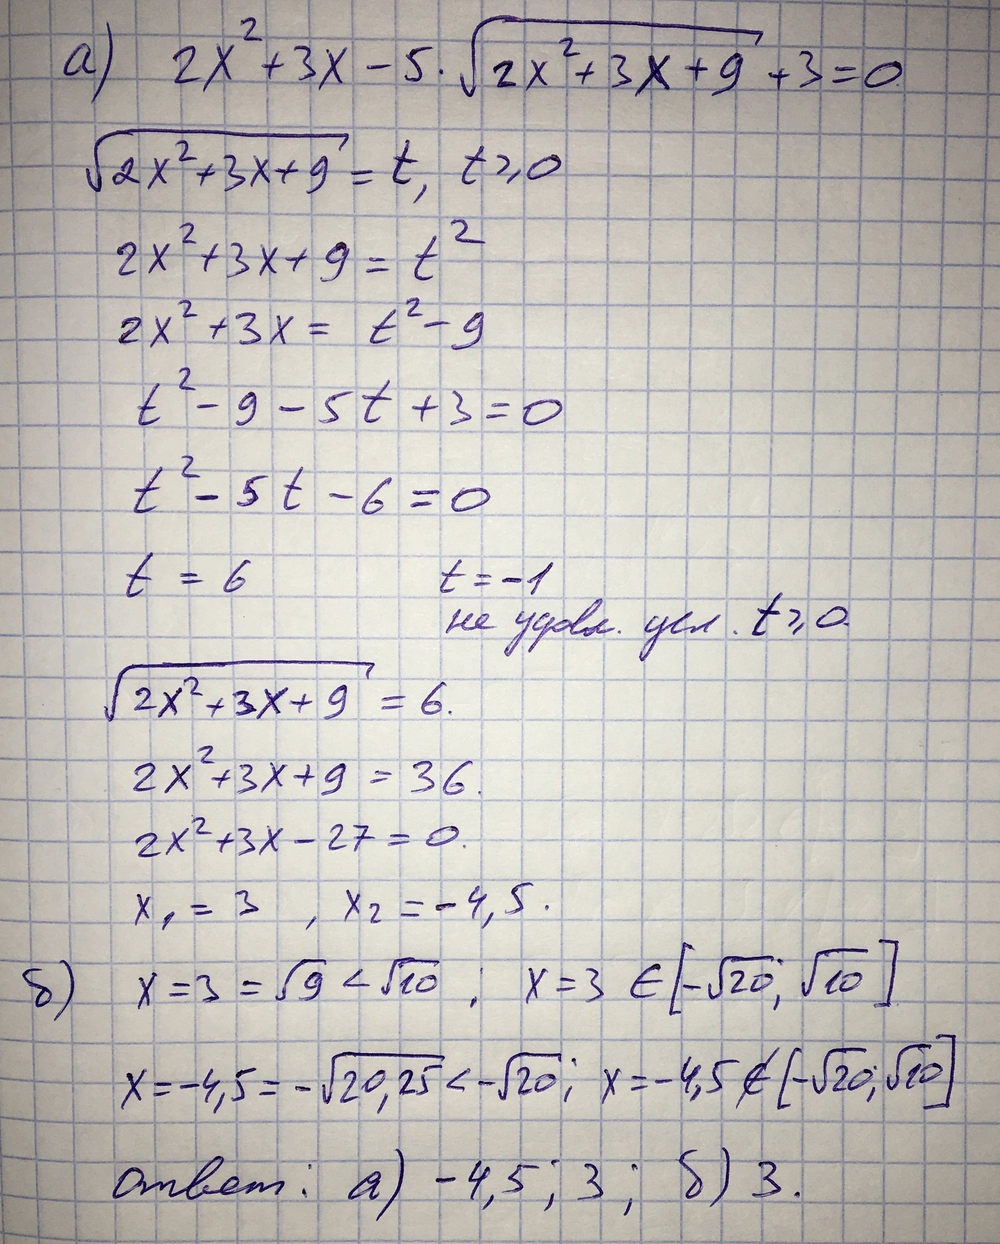 а) 2x² + 3x − 5·√(2x² + 3x + 9) + 3 = 0.
√(2x² + 3x + 9) = t, t ≥ 0
2x² + 3x + 9 = t²
2x² + 3x = t² − 9
t² − 9 − 5t + 3 = 0
t² − 5t − 6 = 0
t = 6 t = −1
не удовл. усл. t ≥ 0.
√(2x² + 3x + 9) = 6.
2x² + 3x + 9 = 36.
2x² + 3x − 27 = 0.
x₁ = 3 , x₂ = −4,5.
б) x = 3 = √9 < √10 ; x = 3 ∈ [−√20; √10]
x = −4,5 = −√20,25 < −√20; x = −4,5 ∉ [−√20; √10]
Ответ: а) −4,5; 3; б) 3.